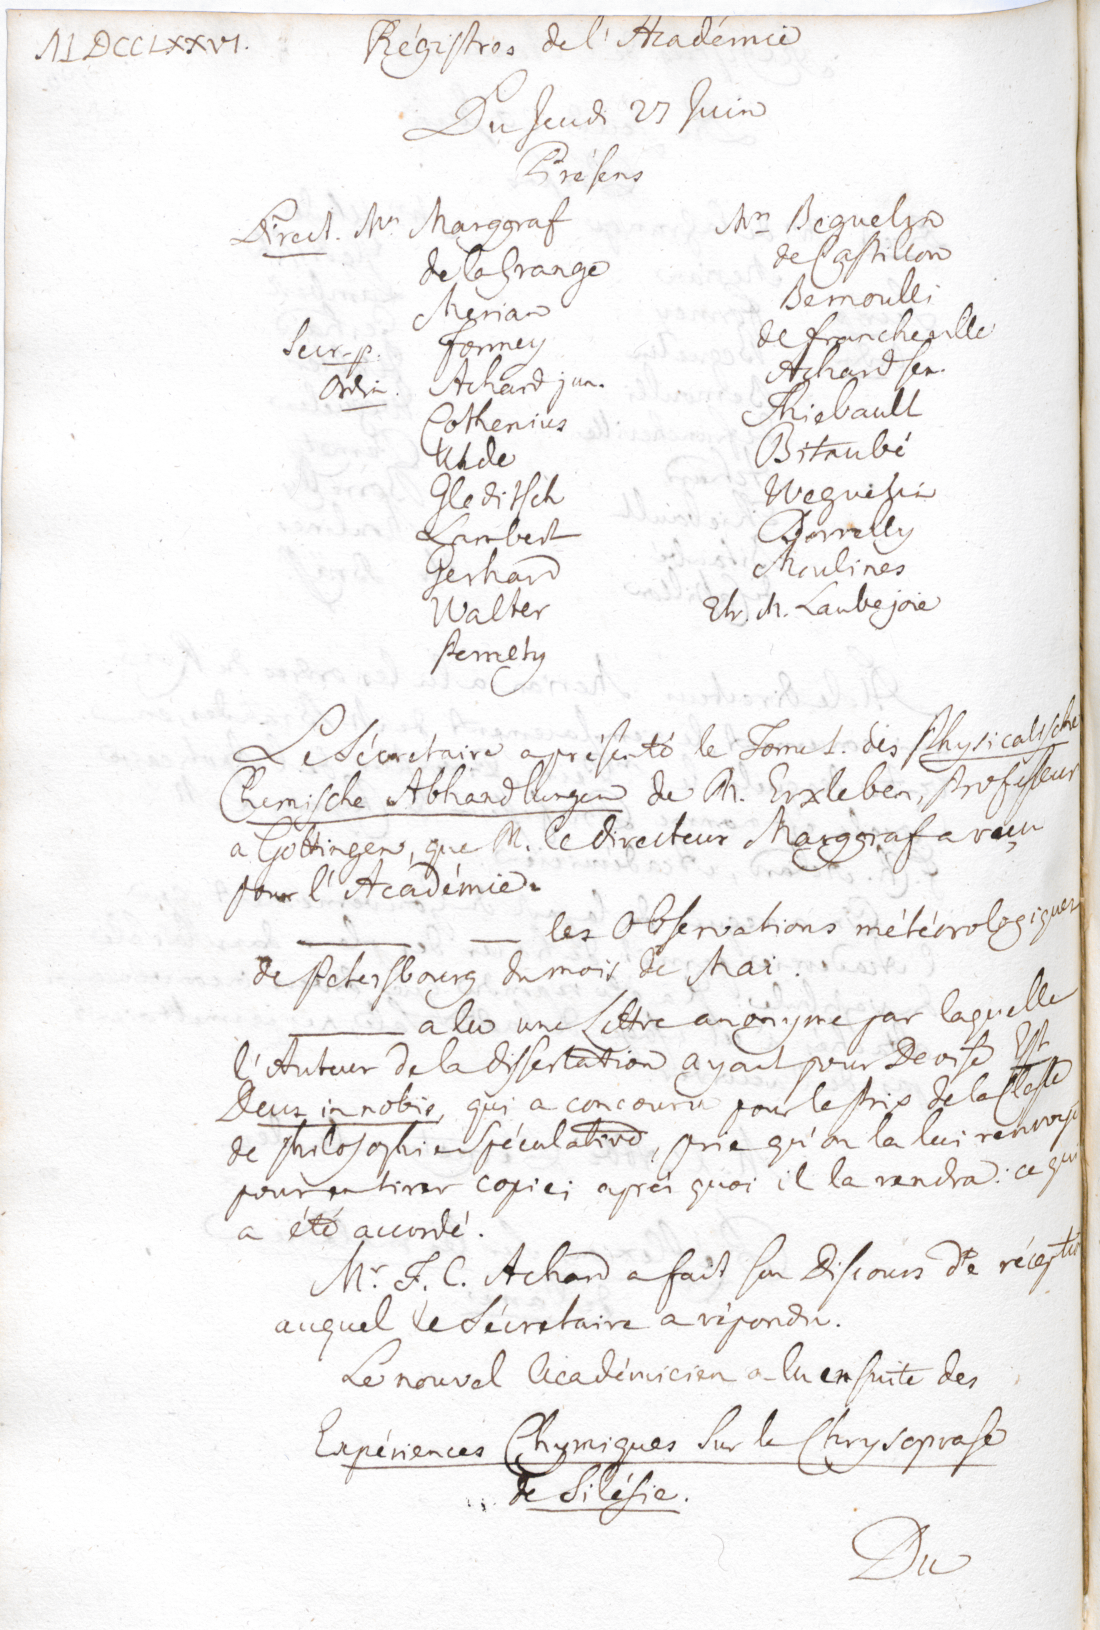 MDCCLXXVI.
Régistres de l'Académie
Du Jeudi 27 Juin
Présens
Direct. Mrs Marggraf
de la Grange
Merian
Secr. p. Formey
Ordin. Achard jun.
Cothenius
Uhde
Gleditsch
Lambert
Gerhard
Walter
Pernety
Mrs Beguelin
de Castillon
Bernoulli
de Francheville
Achard sen.
Thiebault
Bitaubé
Weguelin
Borrelly
Moulines
Etr. M. Laubejoie
Le Sécretaire a présenté le Tome I. des Physicalische
Chemische Abhandlungen de M. Erxleben, Professeur
a Gottingen, que M. le directeur Marggraf a reçu
pour l'Académie.
les Observations météorologiques
de Petersbourg du mois de Mai.
a lu une Lettre anonyme par laquelle
l'Auteur de la dissertation ayant pour Devise Est
Deus in nobis, qui a concouru pour le Prix de la Classe
de Philosophie spéculative, prie qu'on la lui renvoye
pour en tirer copie; après quoi il la rendra: ce qui
a été accordé.
Mr. F. C. Achard a fait son Discours de réception
auquel le Sécretaire a répondu.
Le nouvel Académicien a lu ensuite des
Expériences Chymiques sur la Chrysoprase
de Silésie.
Du